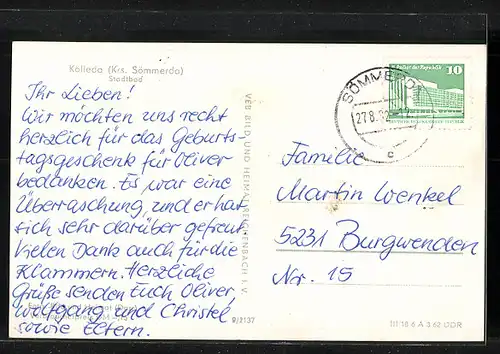 Kölleda (Krs. Sömmerda)
Stadtbad
Ihr Lieben!
Wir möchten uns recht
herzlich für das Geburts-
tagsgeschenk für Oliver
bedanken. Es war eine
Überraschung, und er hat
sich sehr darüber gefreut.
Vielen Dank auch für die
Klammern. Herzliche
Grüße senden Euch Oliver,
Wolfgang und Christel
sowie Eltern.
VEB BILD UND HEIMAT REICHENBACH I. V.
9/2137
SÖMMERDA
27.8.
c
Palast der Republik
10
Familie
Martin Wenkel
5231 Burgwenden
Nr. 15
III/18 6 A 3.62 DDR